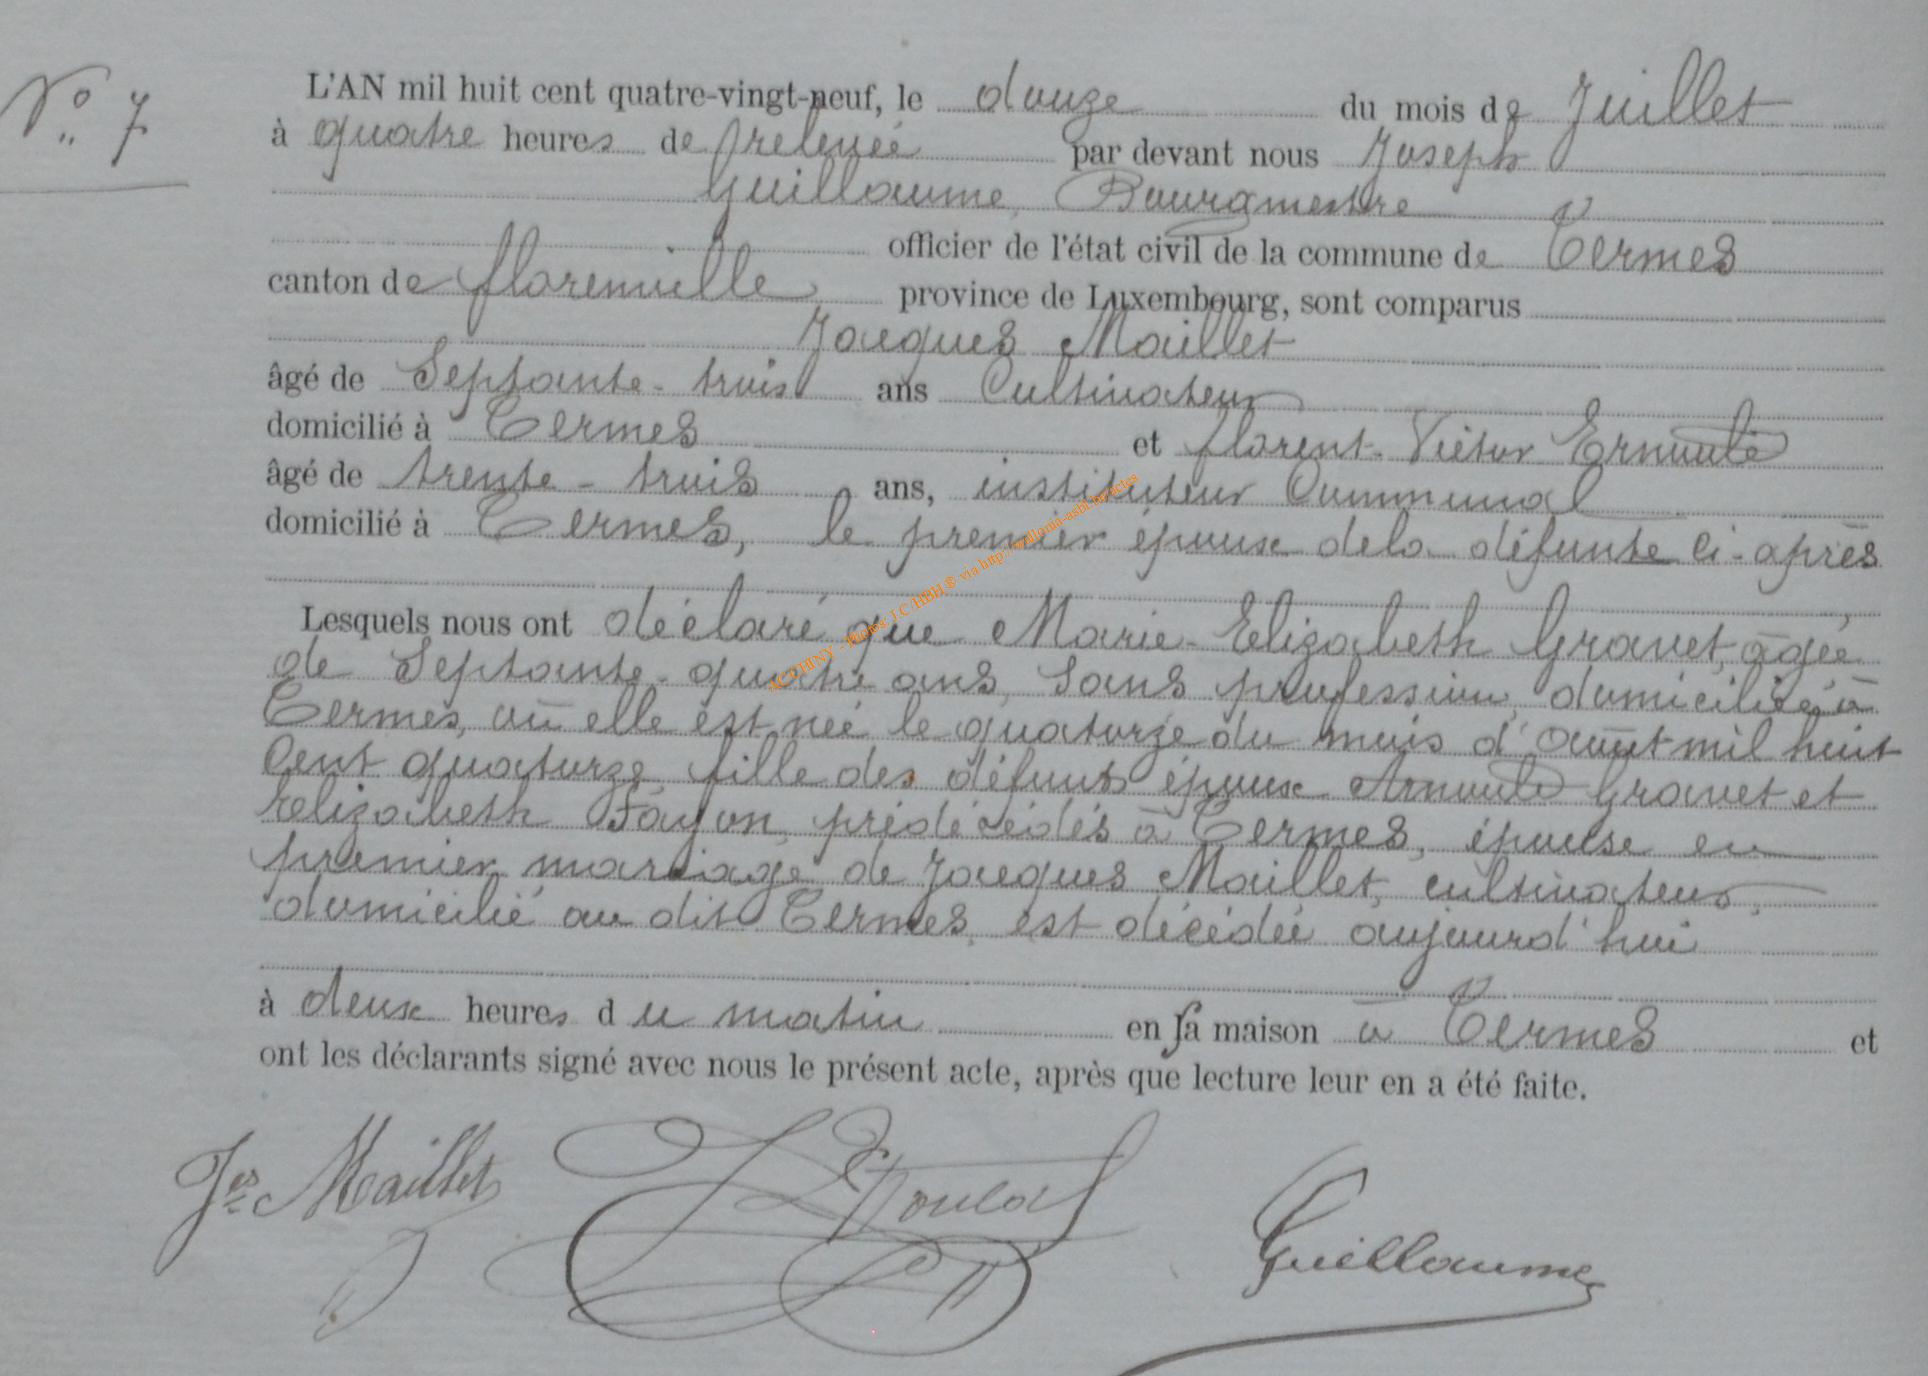 N° 7
L'AN mil huit cent quatre-vingt-neuf, le douze du mois de Juillet
à quatre heures de relevée par devant nous Joseph
Guillaume, Bourgmestre
officier de l'état civil de la commune de Termes
canton de florenville, province de Luxembourg, sont comparus
Jacques Maillet
âgé de Septante-trois ans Cultivateur
domicilié à Termes et florent-Victor
âgé de trente-trois ans, instituteur Communal
domicilié à Termes, le premier époux de la défunte ci-après
Lesquels nous ont déclaré que Marie-Elizabeth Gravet, âgée
de Septante-quatre ans, Sans profession, domiciliée à
Termes, où elle est née le quatorze du mois d'août mil huit
Cent quatorze, fille des défunts époux Gravet et
Elizabeth prédécédés à Termes, épouse en
premier mariage de Jacques Maillet, cultivateur,
domicilié au dit Termes, est décédée aujourd'hui
à deux heures du matin en sa maison à Termes et
ont les déclarants signé avec nous le présent acte, après que lecture leur en a été faite.
Jes Maillet
Guillaume